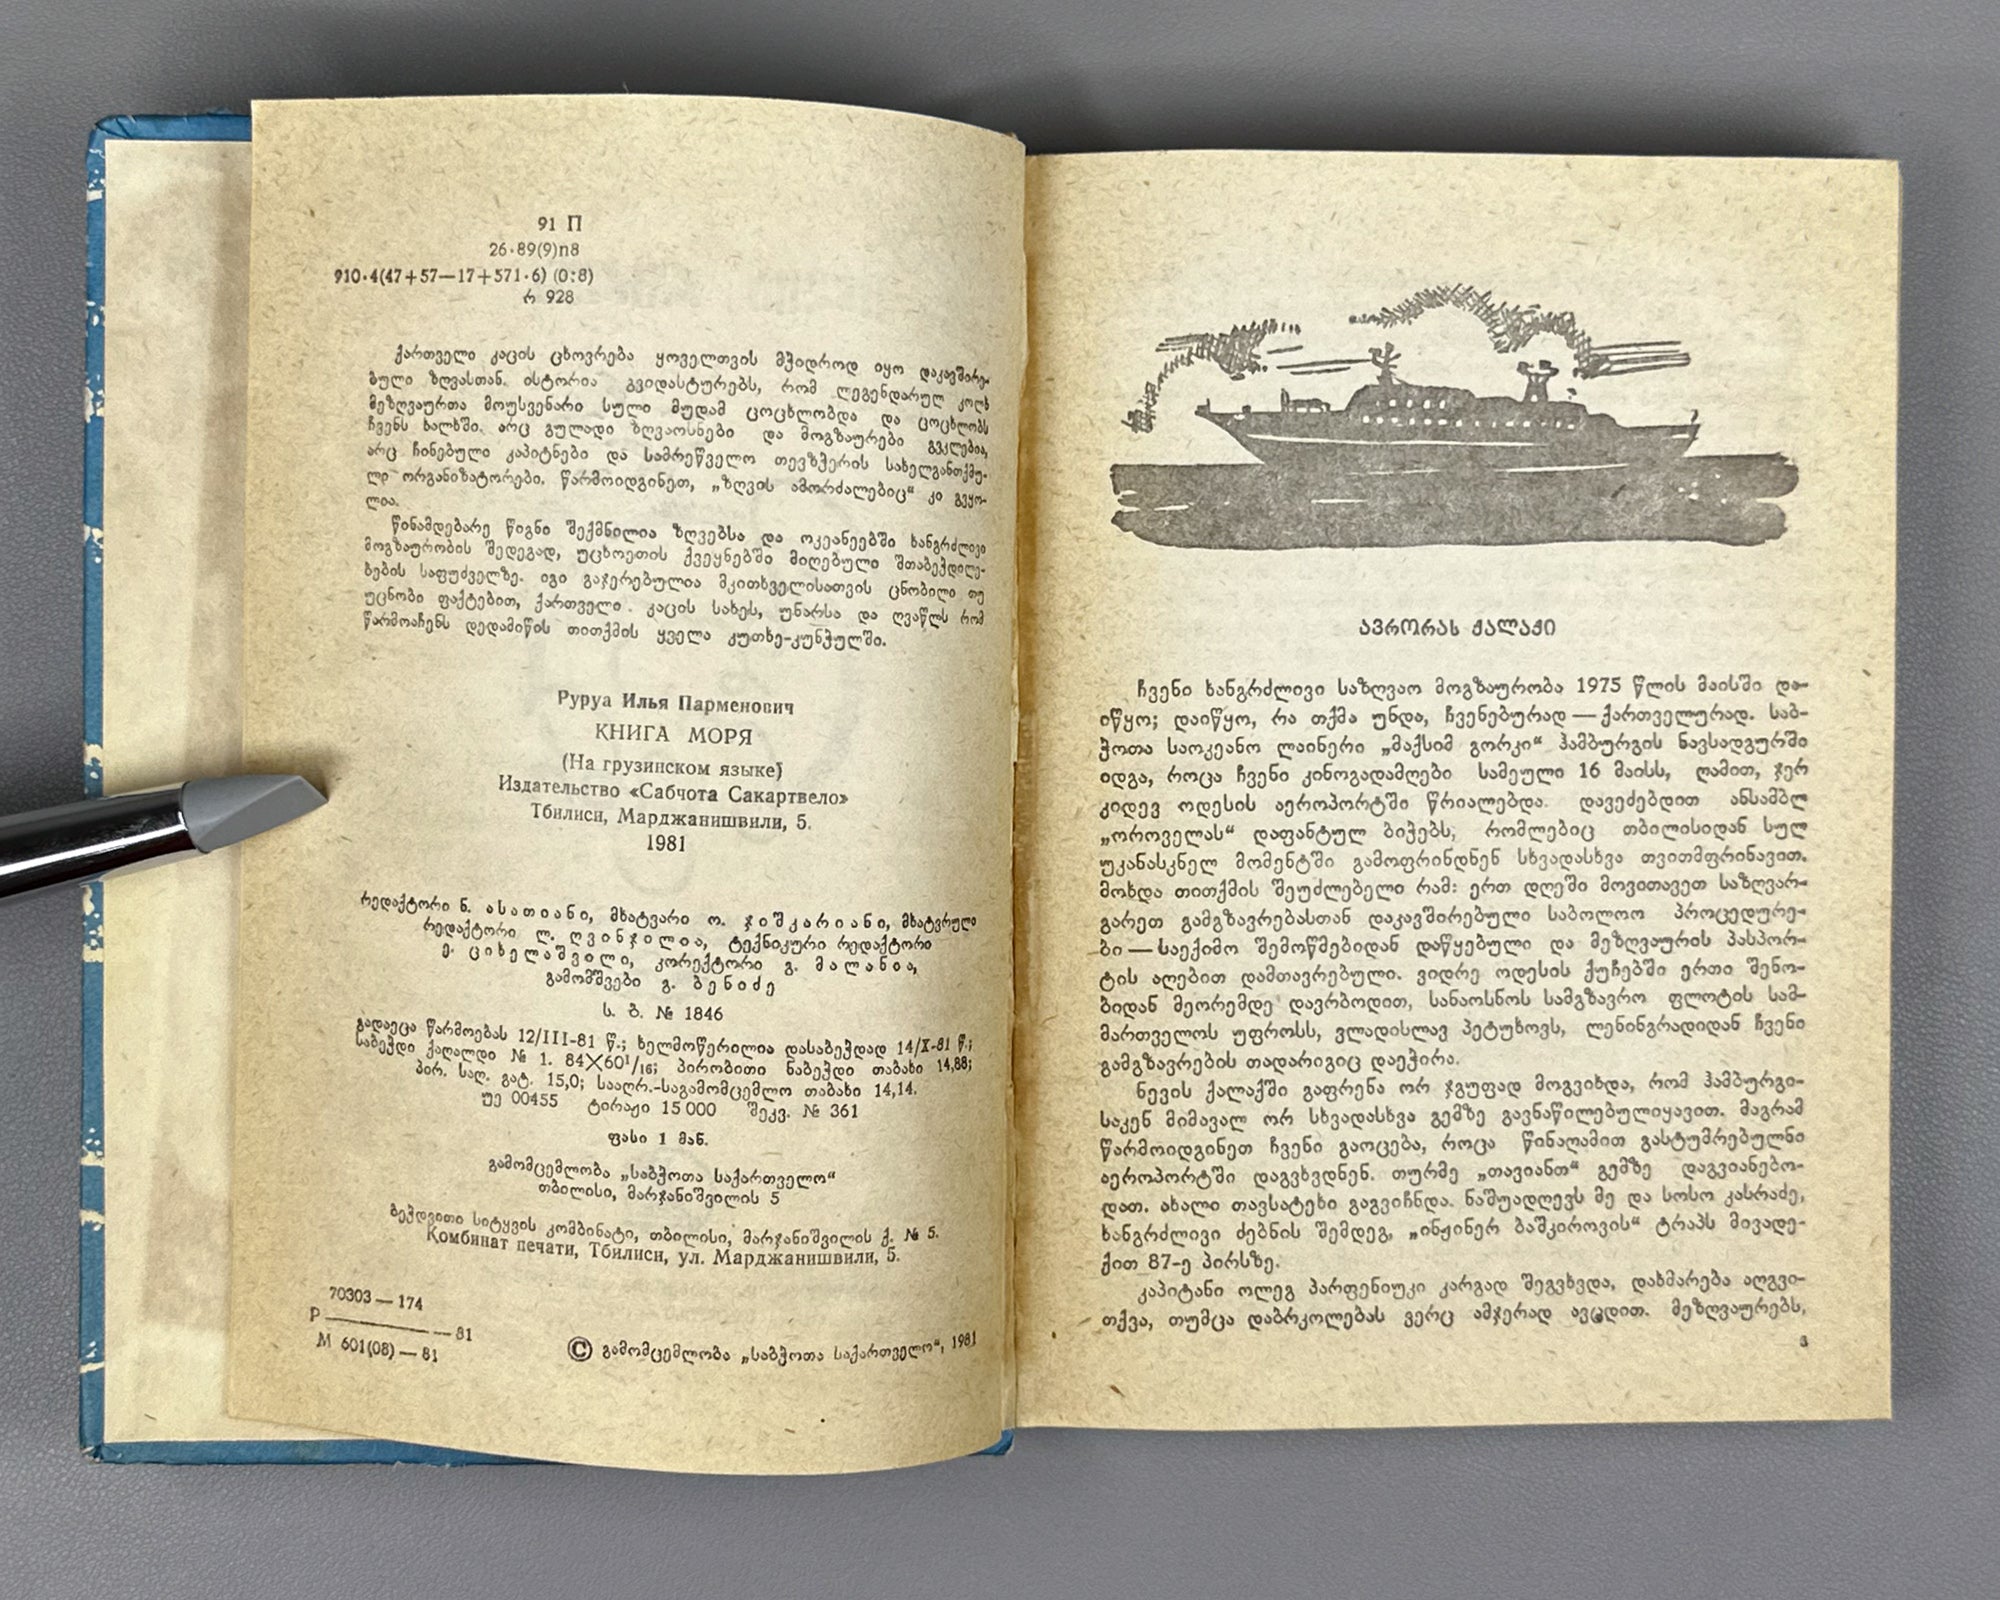 91 П
26·89(9)п8
910·4(47+57—17+571·6) (0:8)
რ 928
ქართველი კაცის ცხოვრება ყოველთვის მჭიდროდ იყო დაკავშირე-
ბული ზღვასთან. ისტორია გვიდასტურებს, რომ ლეგენდარულ კოლხ
მეზღვაურთა მოუსვენარი სული მუდამ ცოცხლობდა და ცოცხლობს
ჩვენს ხალხში. არც გულადი ზღვაოსნები და მოგზაურები გვკლებია,
არც ჩინებული კაპიტნები და სამრეწველო თევზჭერის სახელგანთქმუ-
ლი ორგანიზატორები. წარმოიდგინეთ, „ზღვის ამორძალებიც“ კი გვყო-
ლია.
წინამდებარე წიგნი შექმნილია ზღვებსა და ოკეანეებში ხანგრძლივი
მოგზაურობის შედეგად, უცხოეთის ქვეყნებში მიღებული შთაბეჭდილე-
ბების საფუძველზე. იგი გაჯერებულია მკითხველისათვის ცნობილი თუ
უცნობი ფაქტებით, ქართველი კაცის სახეს, უნარსა და ღვაწლს რომ
წარმოაჩენს დედამიწის თითქმის ყველა კუთხე-კუნჭულში.
Руруа Илья Парменович
КНИГА МОРЯ
(На грузинском языке)
Издательство «Сабчота Сакартвело»
Тбилиси, Марджанишвили, 5.
1981
რედაქტორი ნ. ასათიანი, მხატვარი ო. ჯიშკარიანი, მხატვრული
რედაქტორი ლ. ღვინჯილია, ტექნიკური რედაქტორი
ე. ციხელაშვილი, კორექტორი გ. მალანია,
გამომშვები გ. ბენიძე
ს. ბ. № 1846
გადაეცა წარმოებას 12/III-81 წ.; ხელმოწერილია დასაბეჭდად 14/X-81 წ.;
საბეჭდი ქაღალდი № 1. 84×60¹/₁₆; პირობითი ნაბეჭდი თაბახი 14,88;
პირ. საღ. გატ. 15,0; სააღრ.-საგამომცემლო თაბახი 14,14.
უე 00455 ტირაჟი 15 000 შეკვ. № 361
ფასი 1 მან.
გამომცემლობა „საბჭოთა საქართველო“
თბილისი, მარჯანიშვილის 5
ბეჭდვითი სიტყვის კომბინატი, თბილისი, მარჯანიშვილის ქ. № 5.
Комбинат печати, Тбилиси, ул. Марджанишвили, 5.
70303 — 174
Р — 81
М 601(08) — 81
© გამომცემლობა „საბჭოთა საქართველო“, 1981
ავრორას ქალაქი
ჩვენი ხანგრძლივი საზღვაო მოგზაურობა 1975 წლის მაისში და-
იწყო; დაიწყო, რა თქმა უნდა, ჩვენებურად — ქართველურად. საბ-
ჭოთა საოკეანო ლაინერი „მაქსიმ გორკი“ ჰამბურგის ნავსადგურში
იდგა, როცა ჩვენი კინოგადამღები სამეული 16 მაისს, ღამით, ჯერ
კიდევ ოდესის აეროპორტში წრიალებდა. დავეძებდით ანსამბლ
„ოროველას“ დაფანტულ ბიჭებს, რომლებიც თბილისიდან სულ
უკანასკნელ მომენტში გამოფრინდნენ სხვადასხვა თვითმფრინავით.
მოხდა თითქმის შეუძლებელი რამ: ერთ დღეში მოვითავეთ საზღვარ-
გარეთ გამგზავრებასთან დაკავშირებული საბოლოო პროცედურე-
ბი — საექიმო შემოწმებიდან დაწყებული და მეზღვაურის პასპორ-
ტის აღებით დამთავრებული. ვიდრე ოდესის ქუჩებში ერთი შენო-
ბიდან მეორემდე დავრბოდით, სანაოსნოს სამგზავრო ფლოტის სამ-
მართველოს უფროსს, ვლადისლავ პეტუხოვს, ლენინგრადიდან ჩვენი
გამგზავრების თადარიგიც დაეჭირა.
ნევის ქალაქში გაფრენა ორ ჯგუფად მოგვიხდა, რომ ჰამბურგი-
საკენ მიმავალ ორ სხვადასხვა გემზე გავნაწილებულიყავით. მაგრამ
წარმოიდგინეთ ჩვენი გაოცება, როცა წინაღამით გასტუმრებულნი
აეროპორტში დაგვხვდნენ. თურმე „თავიანთ“ გემზე დაგვიანებო-
დათ. ახალი თავსატეხი გაგვიჩნდა. ნაშუადღევს მე და სოსო კასრაძე,
ხანგრძლივი ძებნის შემდეგ, „ინჟინერ ბაშკიროვის“ ტრაპს მივადე-
ქით 87-ე პირსზე.
კაპიტანი ოლეგ პარფენიუკი კარგად შეგვხვდა, დახმარება აღგვი-
თქვა, თუმცა დაბრკოლებას ვერც ამჯერად ავცდით. მეზღვაურებს,
3